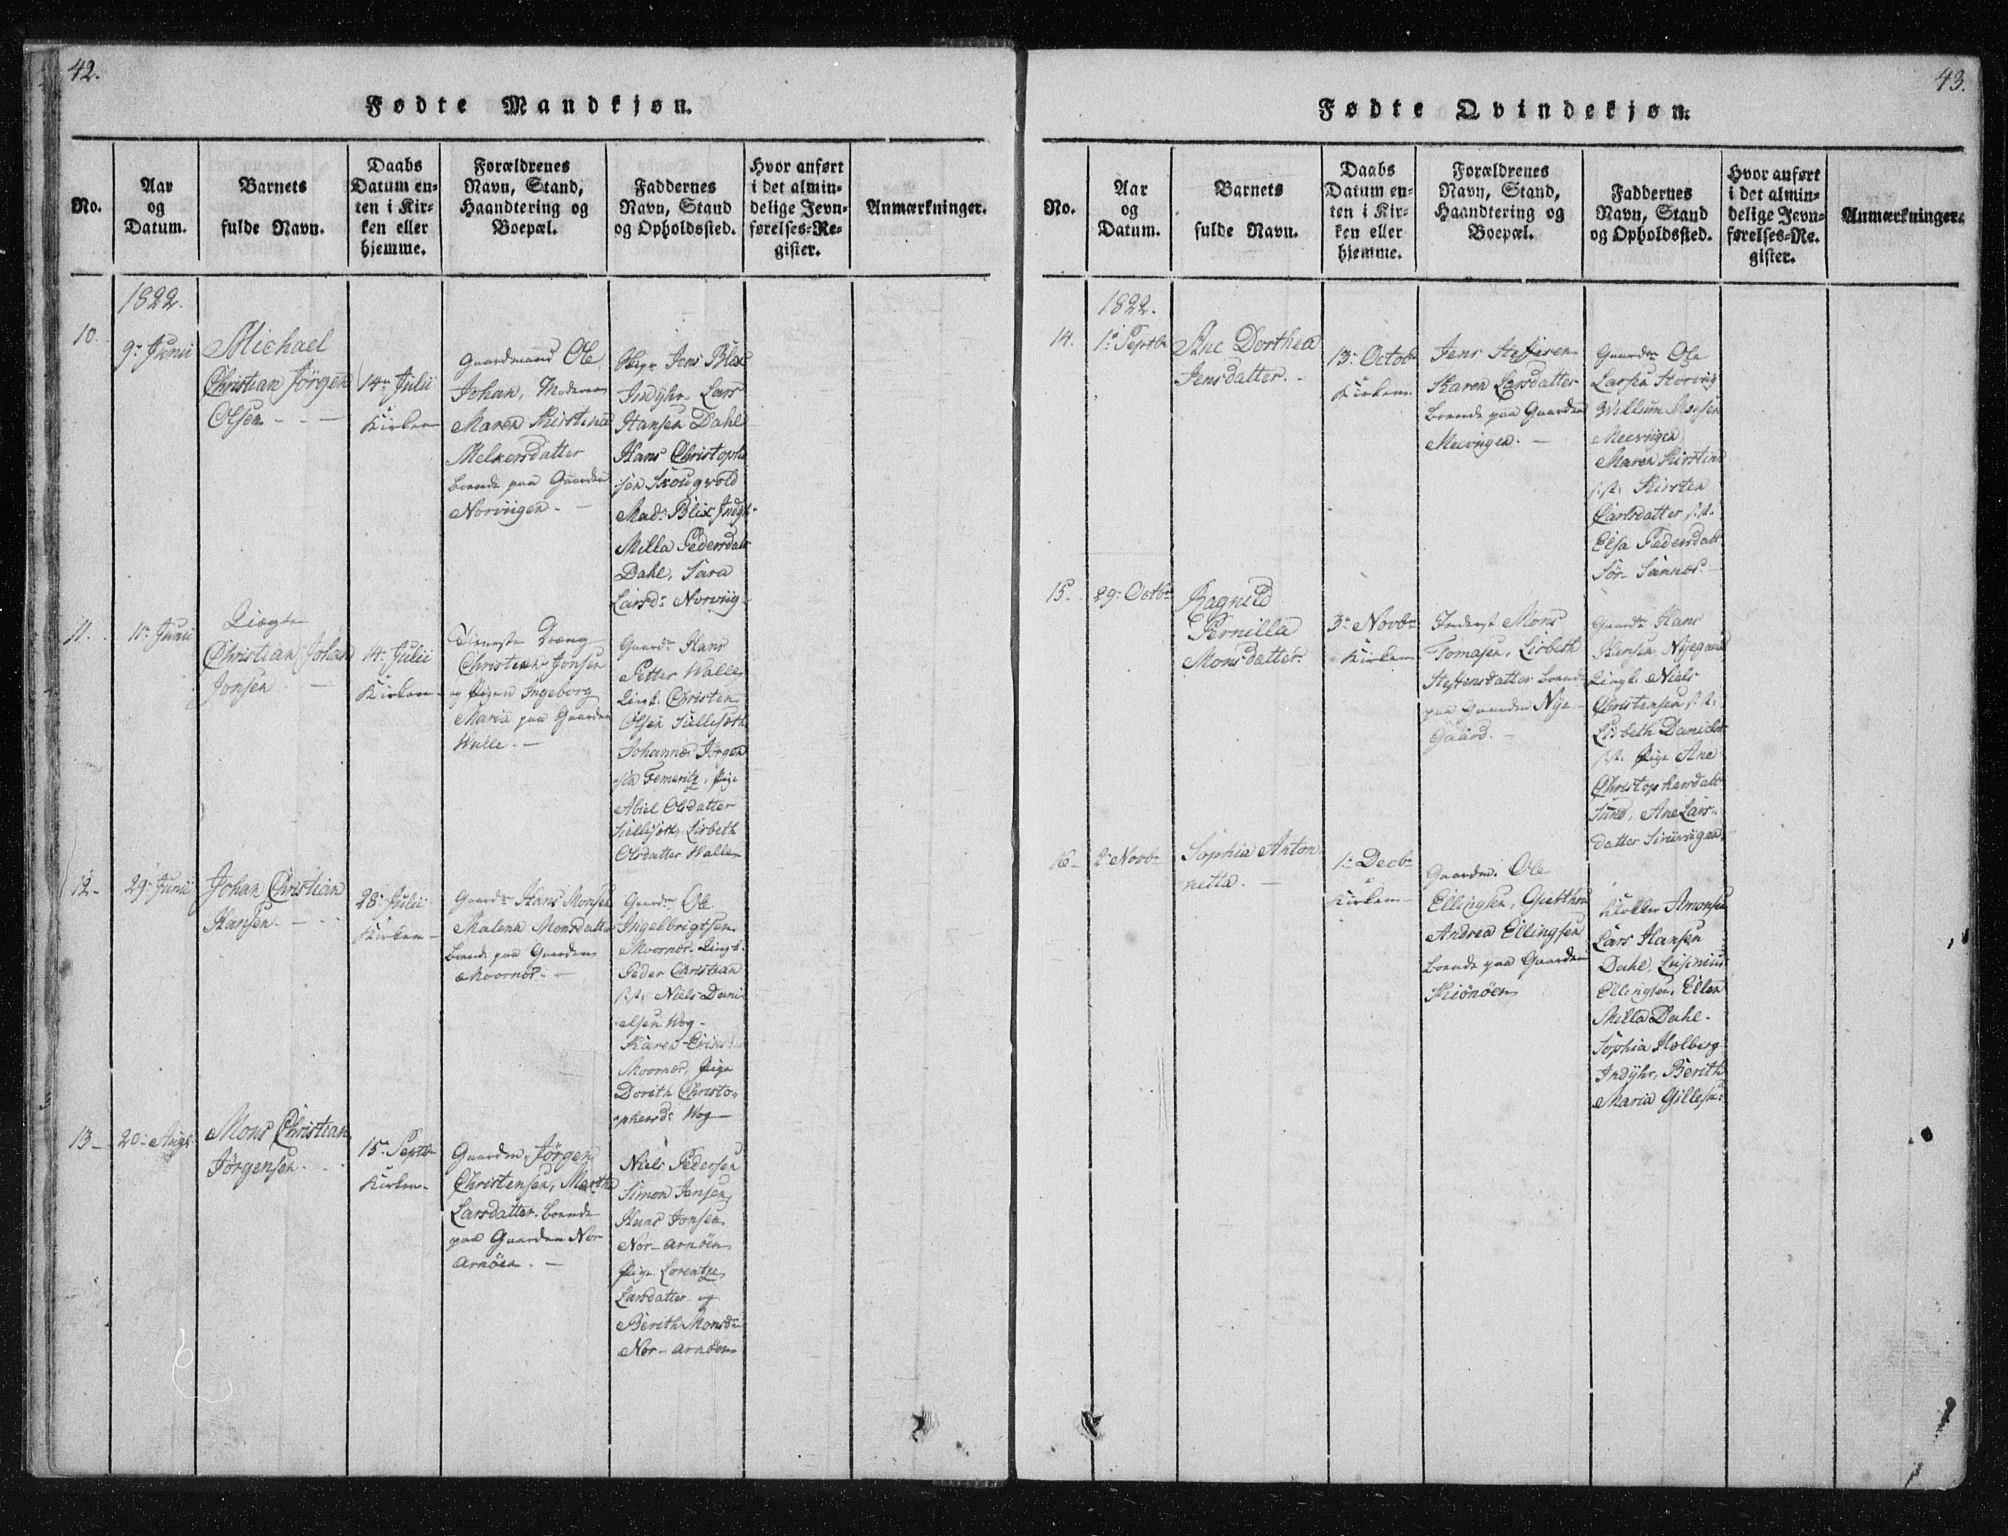 42.
Fødte Mandkjøn.
No.
Aar
og
Datum.
Barnets
fulde Navn.
Daabs
Datum en-
ten i Kir-
ken eller
hjemme.
Forældrenes
Navn, Stand,
Haandtering og
Boepæl.
Faddernes
Navn, Stand
og Opholdssted.
Hvor anført
i det almin-
delige Jevn-
førelses-Re-
gister.
Anmærkninger.
1822.
10.
9de Junii
Michael
Christian Jörgen
Olsen
14de Julii
i
Kirken
Gaardmand Ole
Johan, Moderen
Maren Kirstina
Melkersdatter
boende paa Gaarden
Norvigen.
Jens Blix
Indÿhr Lars
Hansen Dahl
Hans Christoph
Mad: Blix Indÿr
Milla Pedersdatt
Dahl, Sara
Larsd: Norviig
11.
11te Junii
Uægte
Christian Johan
Jonsen
14 Julii
i
Kirken
Tieneste Dreng
Christian Jonsen
og Pigen Ingeborg
Maria paa Gaarden
Walle.
Gaardm Hans
Petter Walle
Christen
Olsen
Johannes Jörgen
Pige
Abiel Olsdatter
Lisbeth
Olsdatter Walle
12
29 Junii
Johan Christian
Hansen
28 Julii
i
Kirken
Gaardm Hans Monsen
Malena Monsdatter
boende paa Gaarden
Gaardm Ole
Ingelbrigtsen
Peder Christian
s:st: Niels Dani
elsen Wog
Karen
Pige
Dorith Christo-
phersd: Wog
13
20 Augs:
Mons Christian
Jörgensen
15 Septb
i
Kirken
Gaardm: Jörgen
Christensen, Martha
Larsdatter boende
paa Gaarden Nor
Arnöen.
Niels Pedersen
Simon Jensen
Hans Jonsen
Nor-Arnöen
Pige Lorentze
Larsdatter og
Berith Monsd:
Nor-Arnöen
43.
Fødte Qvindekjøn.
No.
Aar
og
Datum.
Barnets
fulde Navn.
Daabs
Datum en-
ten i Kir-
ken eller
hjemme.
Forældrenes
Navn, Stand,
Haandtering og
Boepæl.
Faddernes
Navn, Stand
og Opholdssted.
Hvor anført
i det almin-
delige Jevn-
førelses-Re-
gister.
Anmærkninger.
1822.
14.
1de Septb
Ane Dorthea
Jensdatter.
13 Octobr
i
Kirken.
Jens Steffensen
Karen Larsdatter
boende paa Gaarden
Meevigen.
Gaardm Ole
Larsen Storviig
Willum
Meevigen
Maren Kirstina
s:st: Kirsten
Carlsdatter s:st:
Elsa Pedersdatt
Sör-Sannes.
15.
29 Octbr
Ragnild
Pernilla
Monsdatter.
3 Novbr
i
Kirken
Inderst Mons
Tomasen, Lisbeth
Steffensdatter boende
paa Gaarden Nye-
Gaard.
Gaardm Hans
Hansen Nyegaard
Niels
Christensen s:st:
Lisbeth
s:st: Pige Ane
Christophersdatt
Sund, Ane Lars-
datter
16
2 Novbr
Sophia Anton
netta.
1 Decbr
i
Kirken
Gaardm. Ole
Ellingsen,
Andrea Ellingsen
boende paa Gaarden
Klokker Amonsen
Lars Hansen
Dahl,
Ellingsen, Ellen
Milla Dahl.
Sophia Holberg
Indÿhr, Berith
Maria